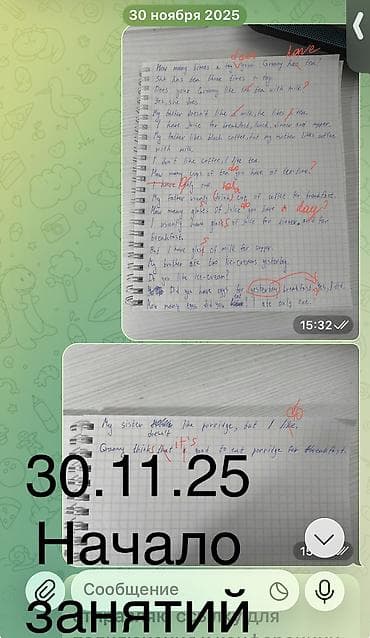 30 ноября 2025
does have
How many times a day your Granny has tea?
She has tea three times a day.
Does your Granny like tea with milk?
Yes, she does.
My father doesn't like milk, he likes tea.
I have juice for breakfast, lunch, dinner and supper.
My father likes black coffee, but my mother likes coffee
with milk.
I don't like coffee, I like tea.
do
How many cups of tea you have at tea-time?
I have only one.
My father usually drinks cup of coffee for breakfast.
do
How many glass of juice you have a day?
I usually have glass of juice for dinner, and for
breakfast.
But I have glass of milk for supper.
My brother ate two ice-creams yesterday.
Do you like ice-cream?
Did you have eggs for yesterday breakfast? Yes, I did.
How many eggs did you I ate only one.
15:32
do
My sister doesn't like porridge, but I like.
it's
Granny thinks that good to eat porridge for breakfast.
30.11.25
Начало
Сообщение
занятий